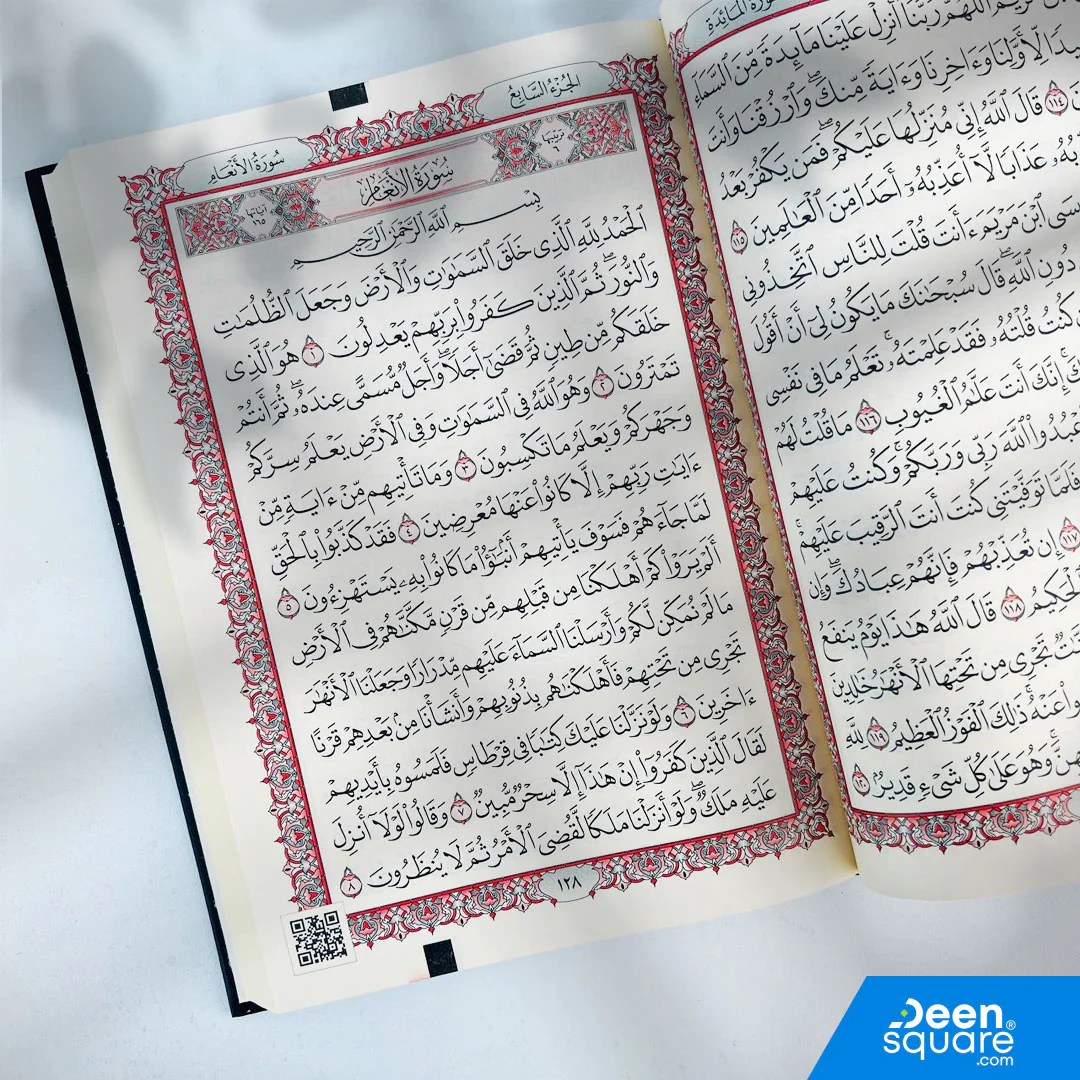 سُورَةُ المَائِدَة
ٱللَّهُمَّ رَبَّنَآ أَنزِلْ عَلَيْنَا مَآئِدَةً مِّنَ ٱلسَّمَآءِ
لِّأَوَّلِنَا وَءَاخِرِنَا وَءَايَةً مِّنكَ ۖ وَٱرْزُقْنَا وَأَنتَ
١١٤ قَالَ ٱللَّهُ إِنِّى مُنَزِّلُهَا عَلَيْكُمْ ۖ فَمَن يَكْفُرْ بَعْدُ
عَذَابًا لَّآ أُعَذِّبُهُۥٓ أَحَدًا مِّنَ ٱلْعَٰلَمِينَ ١١٥
ٱبْنَ مَرْيَمَ ءَأَنتَ قُلْتَ لِلنَّاسِ ٱتَّخِذُونِى
دُونِ ٱللَّهِ ۖ قَالَ سُبْحَٰنَكَ مَا يَكُونُ لِىٓ أَنْ أَقُولَ
كُنتُ قُلْتُهُۥ فَقَدْ عَلِمْتَهُۥ ۚ تَعْلَمُ مَا فِى نَفْسِى
إِنَّكَ أَنتَ عَلَّٰمُ ٱلْغُيُوبِ ١١٦ مَا قُلْتُ لَهُمْ
ٱللَّهَ رَبِّى وَرَبَّكُمْ ۚ وَكُنتُ عَلَيْهِمْ
فَلَمَّا تَوَفَّيْتَنِى كُنتَ أَنتَ ٱلرَّقِيبَ عَلَيْهِمْ ۚ
١١٧ إِن تُعَذِّبْهُمْ فَإِنَّهُمْ عِبَادُكَ ۖ وَإِن
ٱلْحَكِيمُ ١١٨ قَالَ ٱللَّهُ هَٰذَا يَوْمُ يَنفَعُ
تَجْرِى مِن تَحْتِهَا ٱلْأَنْهَٰرُ خَٰلِدِينَ
عَنْهُ ۚ ذَٰلِكَ ٱلْفَوْزُ ٱلْعَظِيمُ ١١٩ لِلَّهِ
وَهُوَ عَلَىٰ كُلِّ شَىْءٍ قَدِيرٌۢ ١٢٠
الجُزْءُ السَّابِعُ
سُورَةُ الأَنْعَام
ترتيبها
سُورَةُ الأَنْعَام
آياتها ١٦٥
بِسْمِ ٱللَّهِ ٱلرَّحْمَٰنِ ٱلرَّحِيمِ
ٱلْحَمْدُ لِلَّهِ ٱلَّذِى خَلَقَ ٱلسَّمَٰوَٰتِ وَٱلْأَرْضَ وَجَعَلَ ٱلظُّلُمَٰتِ
وَٱلنُّورَ ۖ ثُمَّ ٱلَّذِينَ كَفَرُوا۟ بِرَبِّهِمْ يَعْدِلُونَ ١ هُوَ ٱلَّذِى
خَلَقَكُم مِّن طِينٍ ثُمَّ قَضَىٰٓ أَجَلًا ۖ وَأَجَلٌ مُّسَمًّى عِندَهُۥ ۖ ثُمَّ أَنتُمْ
تَمْتَرُونَ ٢ وَهُوَ ٱللَّهُ فِى ٱلسَّمَٰوَٰتِ وَفِى ٱلْأَرْضِ يَعْلَمُ سِرَّكُمْ
وَجَهْرَكُمْ وَيَعْلَمُ مَا تَكْسِبُونَ ٣ وَمَا تَأْتِيهِم مِّنْ ءَايَةٍ مِّنْ
ءَايَٰتِ رَبِّهِمْ إِلَّا كَانُوا۟ عَنْهَا مُعْرِضِينَ ٤ فَقَدْ كَذَّبُوا۟ بِٱلْحَقِّ
لَمَّا جَآءَهُمْ فَسَوْفَ يَأْتِيهِمْ أَنۢبَٰٓؤُا۟ مَا كَانُوا۟ بِهِۦ يَسْتَهْزِءُونَ ٥
أَلَمْ يَرَوْا۟ كَمْ أَهْلَكْنَا مِن قَبْلِهِم مِّن قَرْنٍ مَّكَّنَّٰهُمْ فِى ٱلْأَرْضِ
مَا لَمْ نُمَكِّن لَّكُمْ وَأَرْسَلْنَا ٱلسَّمَآءَ عَلَيْهِم مِّدْرَارًا وَجَعَلْنَا ٱلْأَنْهَٰرَ
تَجْرِى مِن تَحْتِهِمْ فَأَهْلَكْنَٰهُم بِذُنُوبِهِمْ وَأَنشَأْنَا مِنۢ بَعْدِهِمْ قَرْنًا
ءَاخَرِينَ ٦ وَلَوْ نَزَّلْنَا عَلَيْكَ كِتَٰبًا فِى قِرْطَاسٍ فَلَمَسُوهُ بِأَيْدِيهِمْ
لَقَالَ ٱلَّذِينَ كَفَرُوٓا۟ إِنْ هَٰذَآ إِلَّا سِحْرٌ مُّبِينٌ ٧ وَقَالُوا۟ لَوْلَآ أُنزِلَ
عَلَيْهِ مَلَكٌ ۖ وَلَوْ أَنزَلْنَا مَلَكًا لَّقُضِىَ ٱلْأَمْرُ ثُمَّ لَا يُنظَرُونَ ٨
١٢٨
Deen
square®
.com